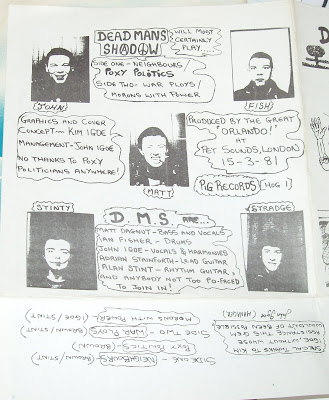 DEAD MANS
SHADOW
WILL MOST
CERTAINLY
PLAY.....
SIDE ONE - NEIGHBOURS/
POXY POLITICS
SIDE TWO - WAR PLOYS/
MORONS WITH POWER
JOHN
FISH
GRAPHICS AND COVER
CONCEPT - KIM IGOE
MANAGEMENT - JOHN IGOE
NO THANKS TO POXY
POLITICIANS ANYWHERE!
MATT
PRODUCED BY THE GREAT
'ORLANDO!'
AT
PET SOUNDS, LONDON
15-3-81
PIG RECORDS (HOG 1)
STINTY
D.M.S ARE...
STRADGE
MATT DAGNUT - BASS AND VOCALS
IAN FISHER - DRUMS
JOHN IGOE - VOCALS & HARMONIES
ADRIAN STAINFORTH - LEAD GUITAR
ALAN STINT - RHYTHM GUITAR,
AND ANYBODY NOT TOO PO-FACED
TO JOIN IN!
SIDE ONE - NEIGHBOURS (BROWN/STINT)
POXY POLITICS - (BROWN/STINT)
SIDE TWO - WAR PLOYS (BROWN/STINT)
MORONS WITH POWER (IGOE/STINT)
SPECIAL THANKS TO KIM
IGOE WITHOUT WHOSE
ASSISTANCE THIS GEM
WOULDN'T OF BEEN POSSIBLE
John Igoe (MANAGER)